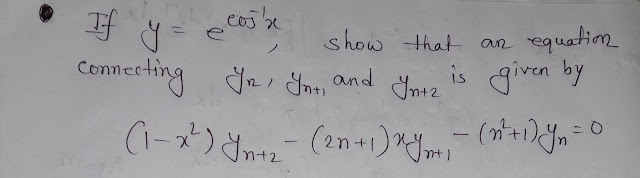 If y = e^{cos⁻¹x}, show that an equation
connecting yₙ, yₙ₊₁, and yₙ₊₂ is given by
(1-x²) yₙ₊₂ - (2n+1) x yₙ₊₁ - (n²+1) yₙ = 0